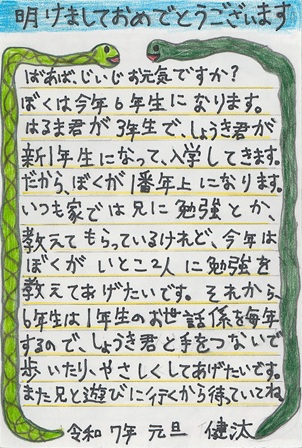 明けましておめでとうございます
ばあば、じいじお元気ですか？
ぼくは今年6年生になります。
はるま君が3年生で、しょうき君が
新1年生になって、入学してきます。
だから、ぼくが1番年上になります。
いつも家では兄に勉強とか、
教えてもらっているけれど、今年は
ぼくがいとこ2人に勉強を
教えてあげたいです。それから、
6年生は1年生のお世話係を毎年
するので、しょうき君と手をつないで
歩いたり、やさしくしてあげたいです。
また兄と遊びに行くから待っていてね
令和7年 元旦 健汰